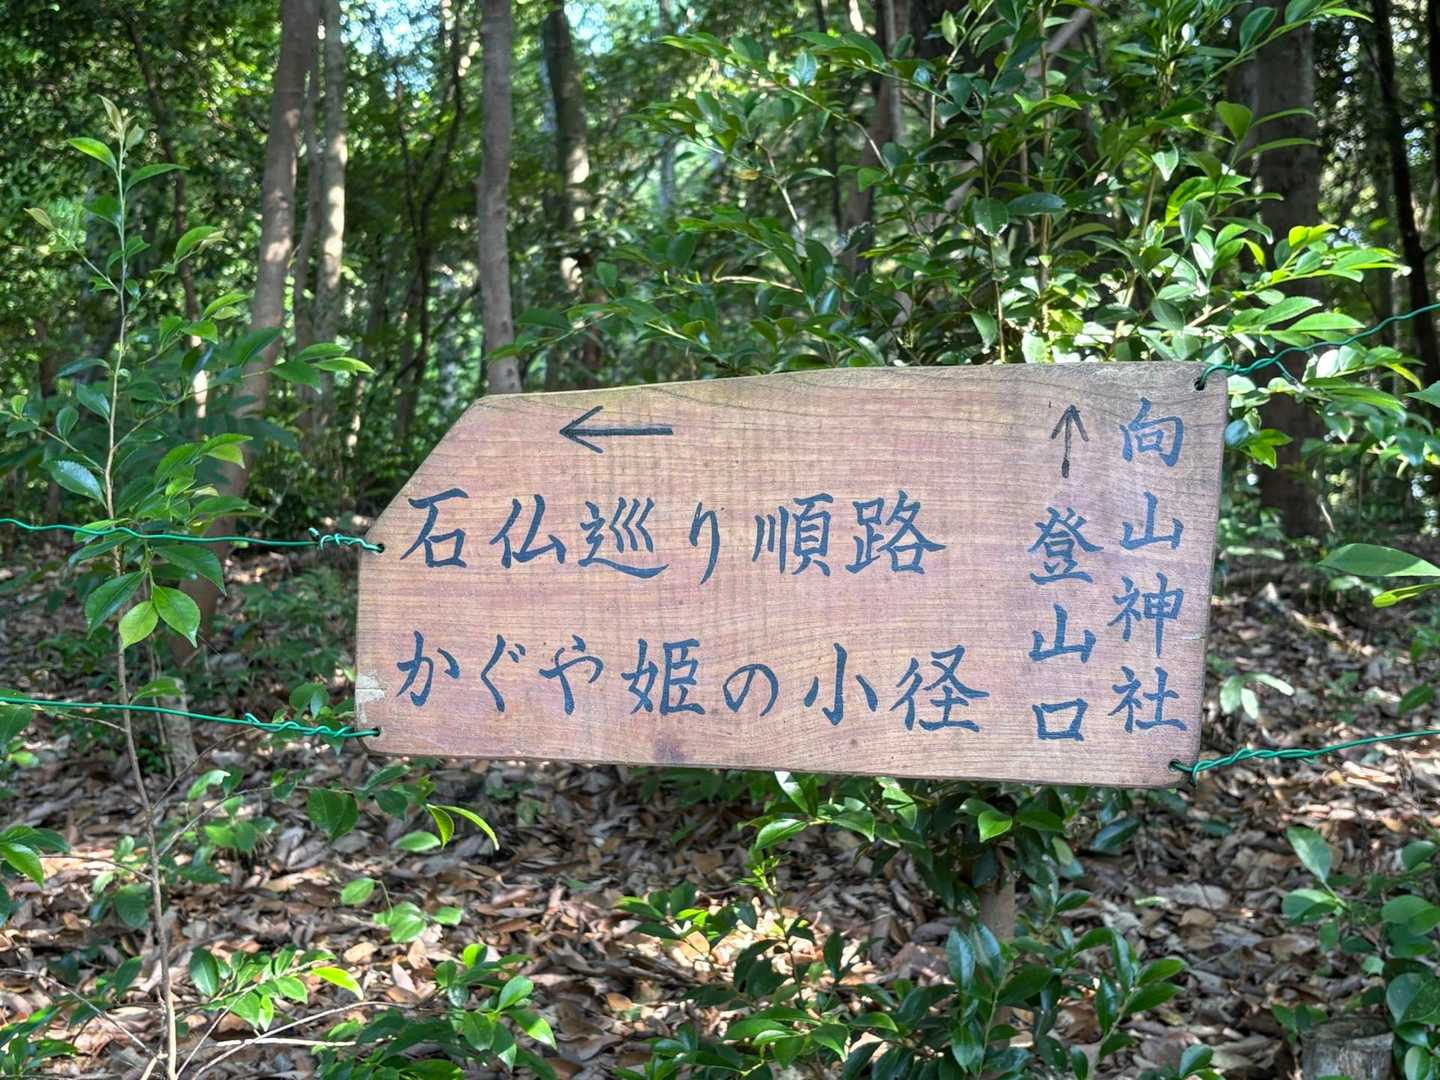 向山神社
↑登山口
←
石仏巡り順路
かぐや姫の小径